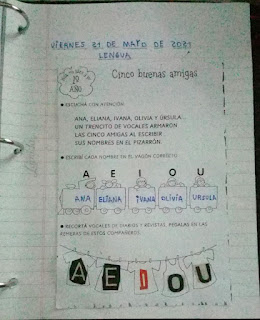 VIERNES 21 DE MAYO DE 2021
LENGUA
1º
AÑO
Cinco buenas amigas
● ESCUCHÁ CON ATENCIÓN.
ANA, ELIANA, IVANA, OLIVIA Y ÚRSULA...
UN TRENCITO DE VOCALES ARMARON
LAS CINCO AMIGAS AL ESCRIBIR
SUS NOMBRES EN EL PIZARRÓN.
● ESCRIBÍ CADA NOMBRE EN EL VAGÓN CORRECTO.
A E I O U
ANA ELIANA IVANA OLIVIA URSULA
● RECORTÁ VOCALES DE DIARIOS Y REVISTAS. PEGALAS EN LAS
REMERAS DE ESTOS COMPAÑEROS.
A E I O U